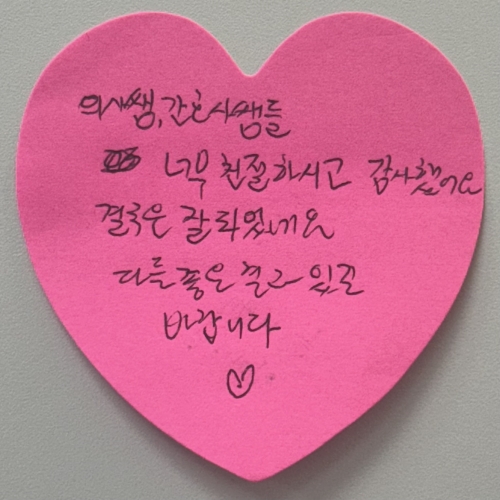 의사쌤, 간호사쌤들
너무 친절하시고 감사했어요
결국은 잘 되었네요
다들 좋은 결과 있길
바랍니다
♡